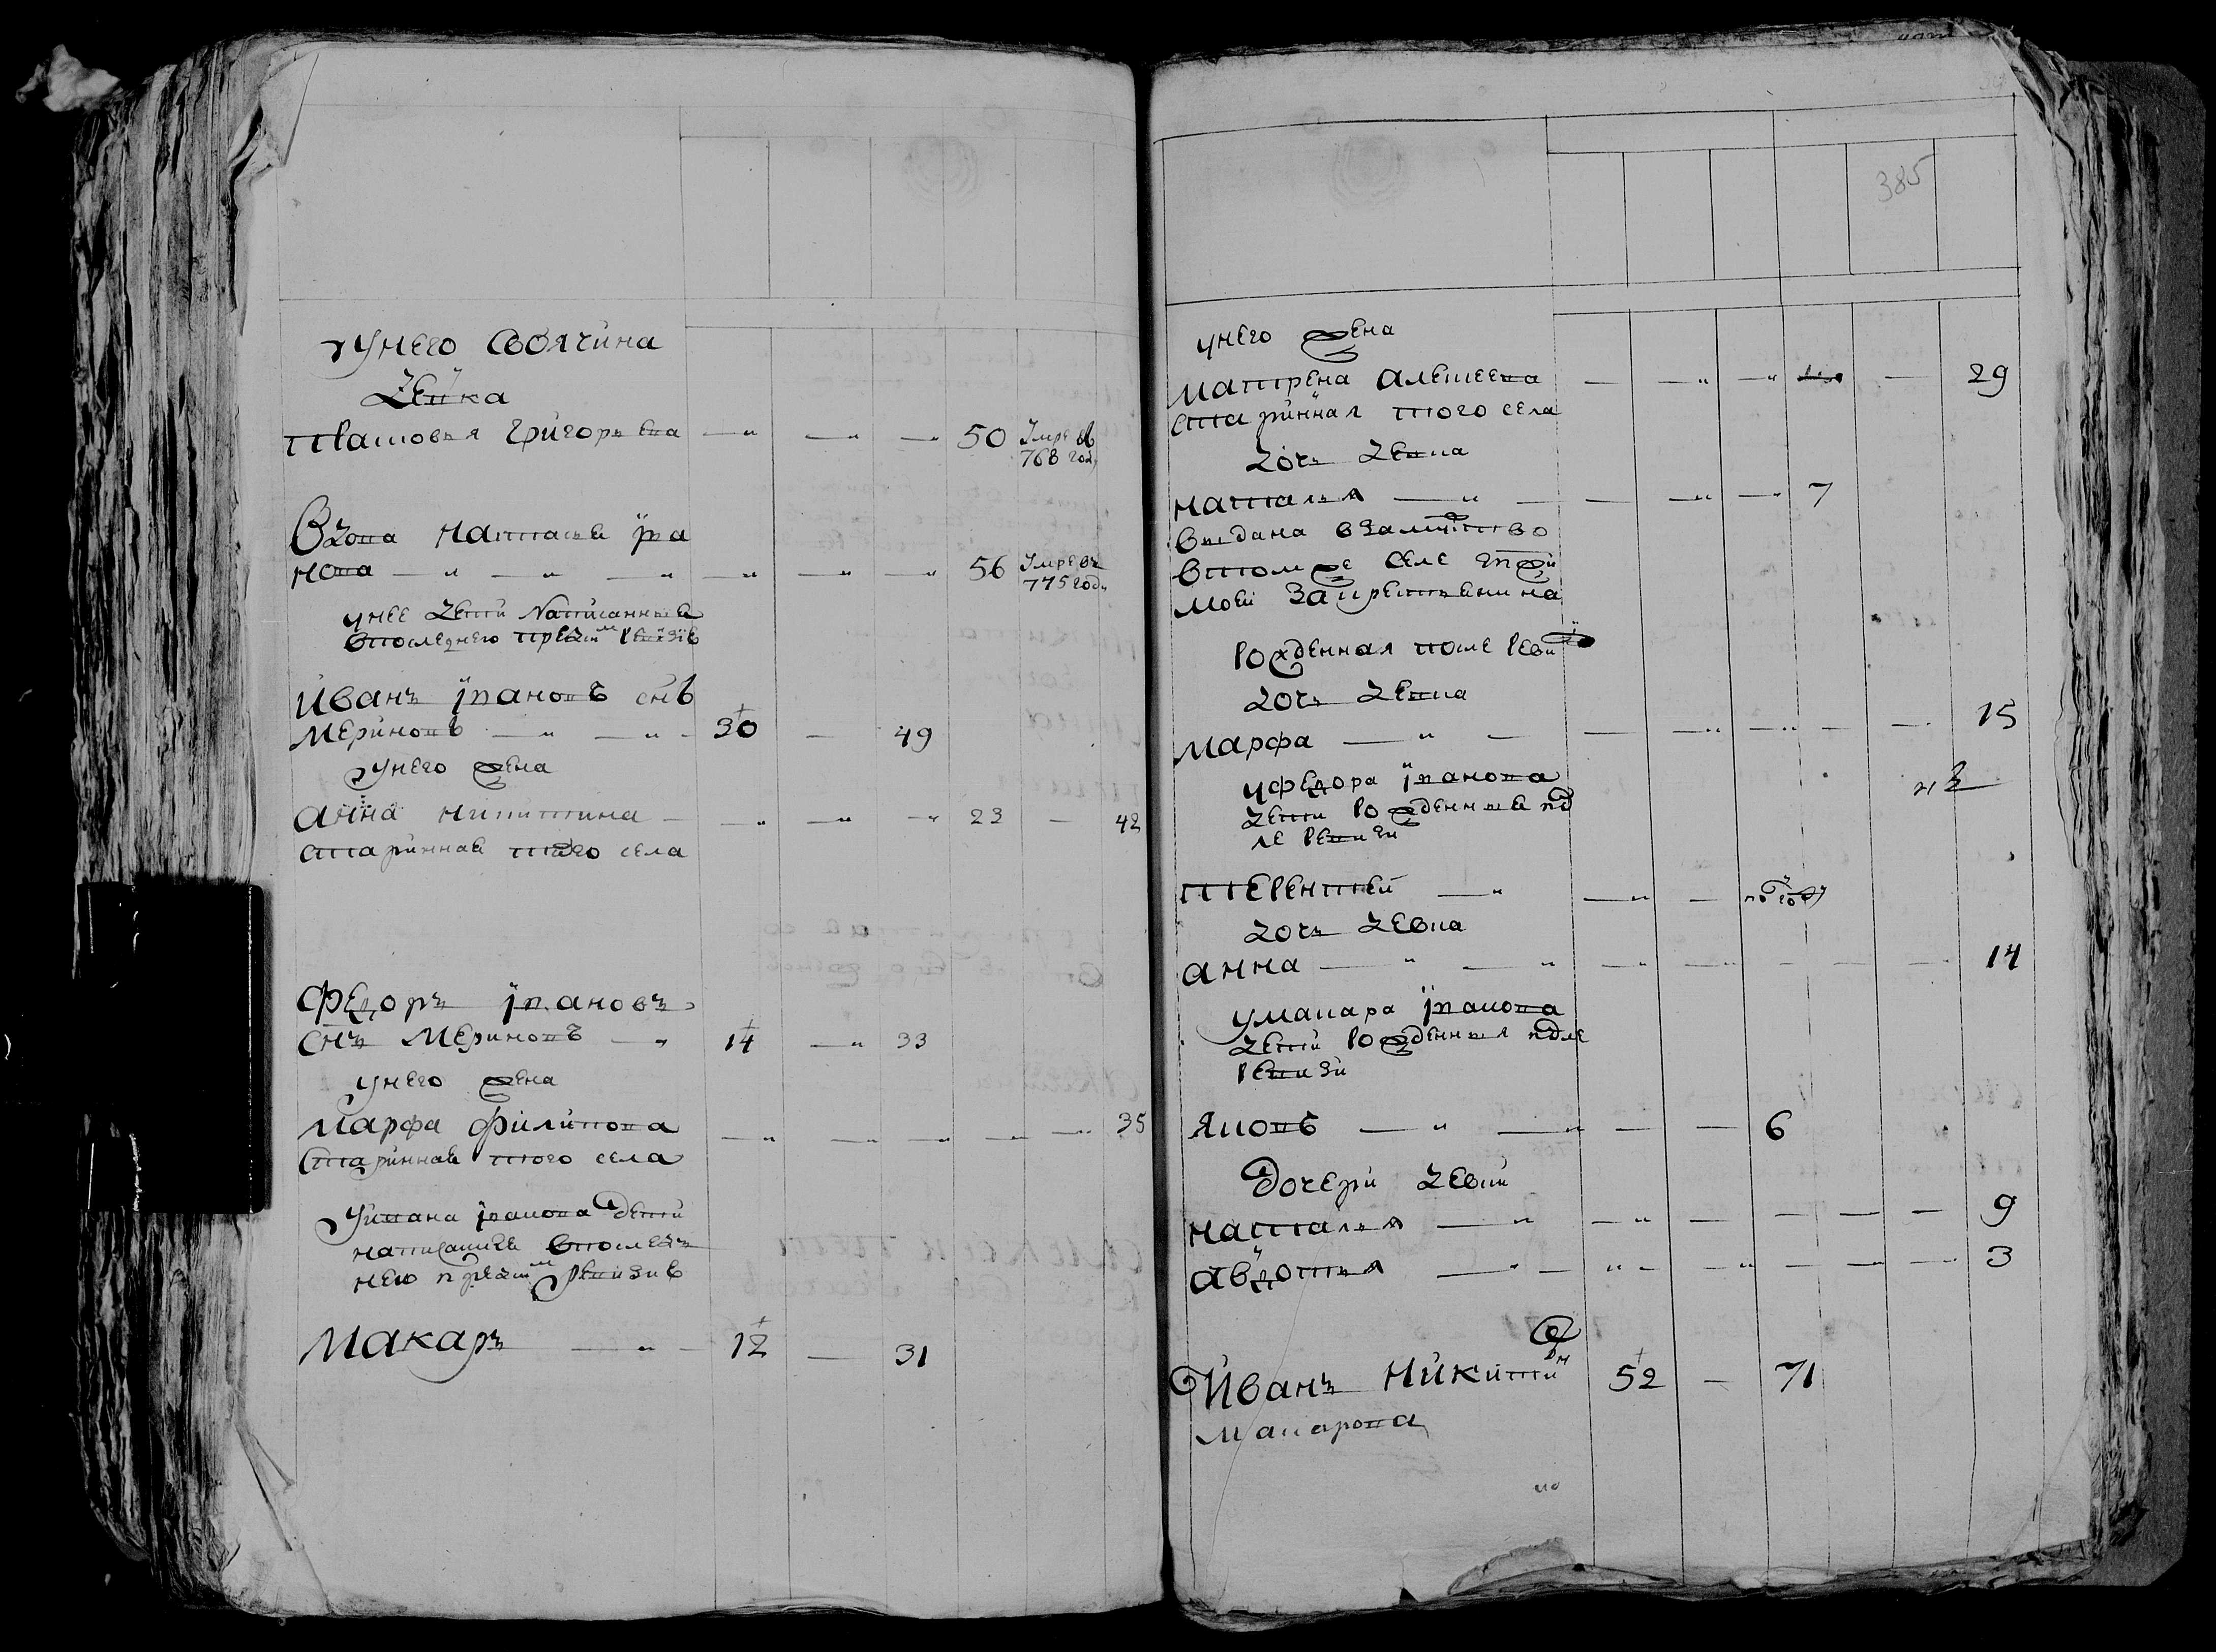 у него своячина
девка
Татовья григорьева — — — 50 умре в
768 году
Вдова наталья ива
нова — — — — — — 56 умре въ
775 году
у нее дети написанныя
в последнею пред сим ревизию
иванъ ивановъ снъ
мериновъ — — 30 — 49
у него жена
анна никитина — — — — 23 — 42
старинная того села
Федоръ ивановъ
снъ мериновъ — 14 — 33
у него жена
марфа филипова — — — — — 35
старинная того села
у ивана иванова дети
написанныя в послед
нею пред сим ревизию
макаръ — — 12 — 31
385
у него жена
матрена алексеева — — — — 29
старинная того села
дочь девка
наталья — — — — — 7
выдана в замужство
в том же селе
рожденная после ревизи
дочь девка
марфа — — — — — — — 15
у федора иванова
дети рожденныя пос
ле ревизи
терентей — — — полгоду
дочь девка
анна — — — — — — — — 14
у макара иванова
дети рожденныя после
ревизи
яковъ — — — — — 6
дочери девки
наталья — — — — — — 9
авдотья — — — — — — — 3
иванъ никитин 52 — 71
макарова